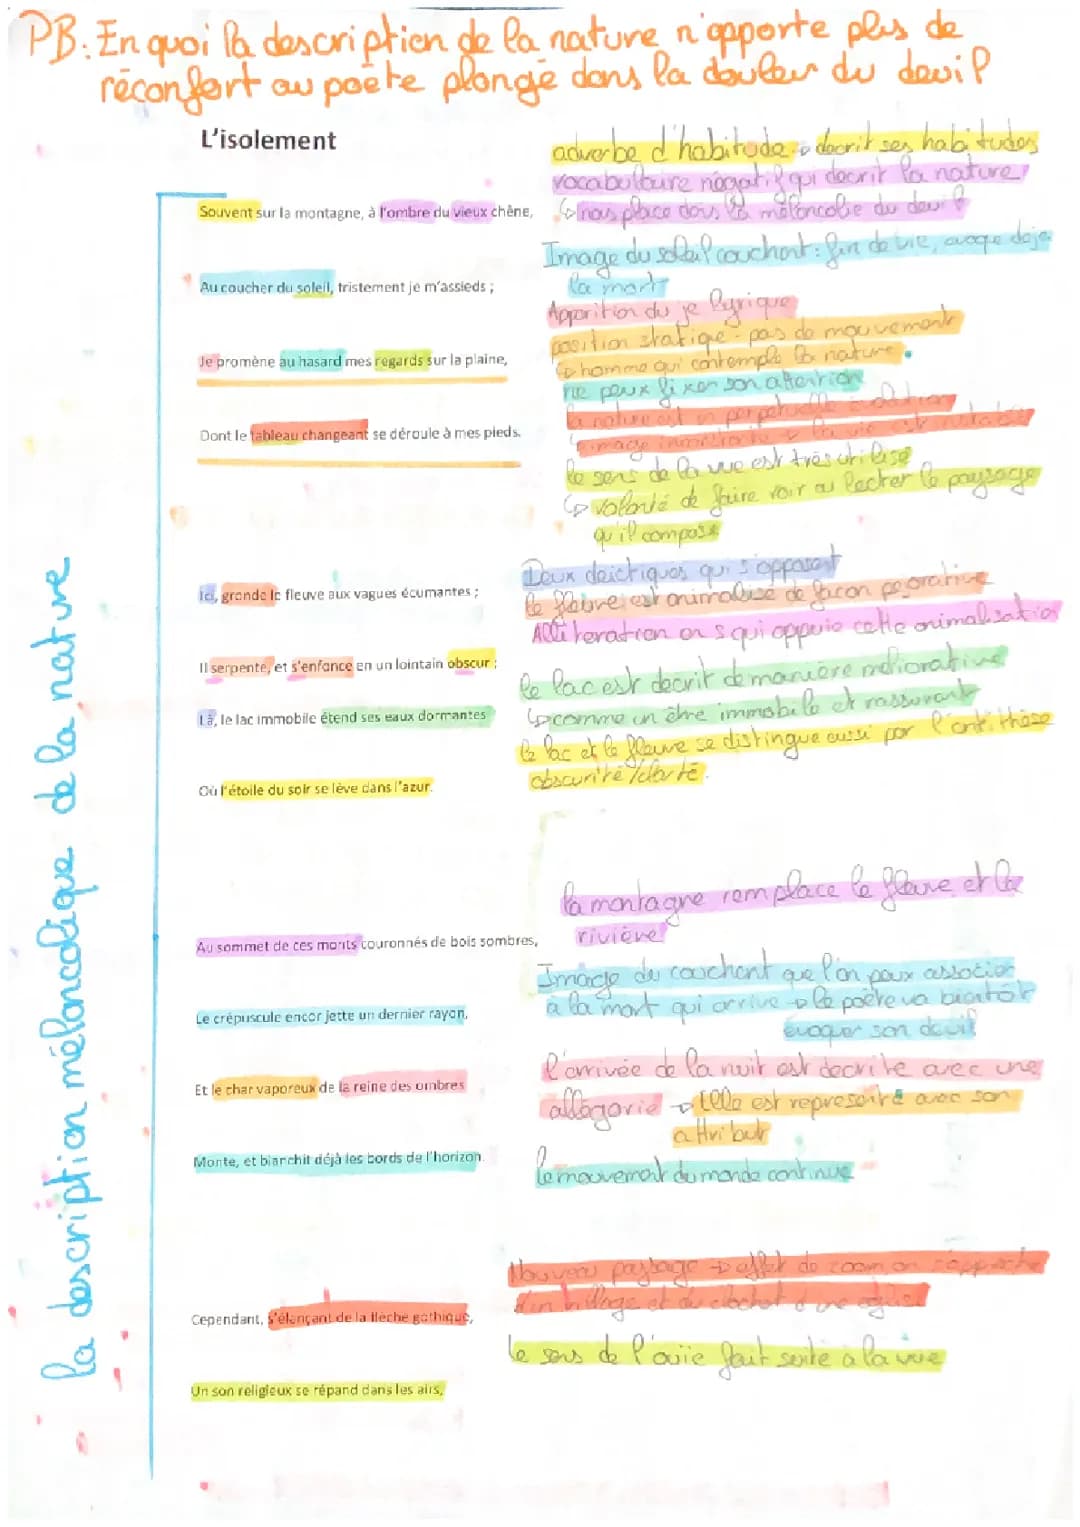 PB: En quoi la description de la nature n'apporte plus de
réconfort au poète plongé dans la douleur du deuil
L'isolement
adverbe d'habitude → décrit ses habitudes
vocabulaire négatif qui décrit la nature
Souvent sur la montagne, à l'ombre du vieux chêne,
↳ nous place dans la méloncolie du deuil
Image du soleil couchant : fin de vie, évoque déjà
la mort
Au coucher du soleil, tristement je m'assieds ;
Apparition du je lyrique
position statique - pas de mouvement
↳ homme qui contemple la nature.
Je promène au hasard mes regards sur la plaine,
ne peux fixer son attention
la nature est en perpetuelle évolution
Dont le tableau changeant se déroule à mes pieds.
le sens de la vue est très utilisé
↳ volonté de faire voir au lecteur le paysage
qu'il compose
Deux deictiques qui s'opposent
Ici, gronde le fleuve aux vagues écumantes ;
le fleuve est animalisé de façon péjorative
Allitération en s qui appuie cette animalisation
Il serpente, et s'enfonce en un lointain obscur ;
le lac est décrit de manière méliorative
↳ comme un être immobile et rassurant
Là, le lac immobile étend ses eaux dormantes
le lac et le fleuve se distingue aussi par l'antithèse
obscurité/clarté.
Où l'étoile du soir se lève dans l'azur.
la montagne remplace le fleuve et la
rivière
Au sommet de ces monts couronnés de bois sombres,
Image du couchant que l'on peux associer
à la mort qui arrive → le poète va bientôt
évoquer son deuil
Le crépuscule encor jette un dernier rayon,
l'arrivée de la nuit est décrite avec une
Et le char vaporeux de la reine des ombres
allégorie → Elle est représenté avec son
attribut
Monte, et blanchit déjà les bords de l'horizon.
le mouvement du monde continue
Nouveau paysage → effet de zoom on s'approche
d'un village et du clochet d'une église
Cependant, s'élançant de la flèche gothique,
le sens de l'ouïe fait suite à la vue
Un son religieux se répand dans les airs,
la description méloncolique de la nature